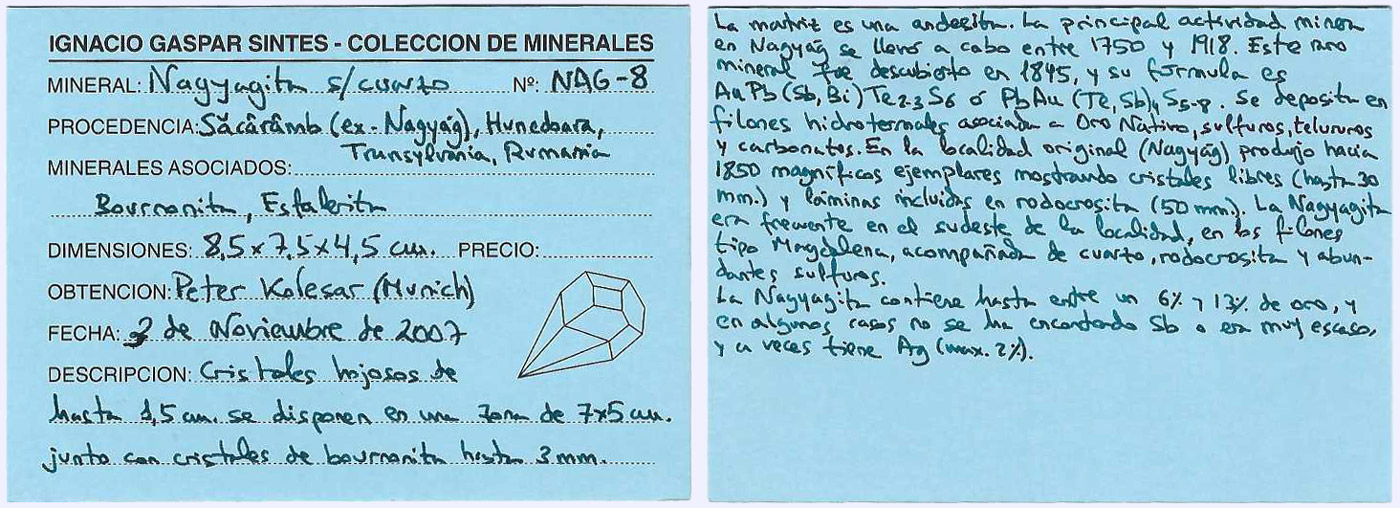 IGNACIO GASPAR SINTES - COLECCION DE MINERALES
MINERAL: Nagyagita s/cuarzo Nº: NAG-8
PROCEDENCIA: Săcărâmb (ex-Nagyág), Hunedoara,
Transylvania, Rumania
MINERALES ASOCIADOS:
Bournonita, Esfalerita
DIMENSIONES: 8,5x7,5x4,5 cm. PRECIO:
OBTENCION: Peter Kolesar (Munich)
FECHA: 2 de Noviembre de 2007
DESCRIPCION: Cristales hojosos de
hasta 1,5 cm. se disponen en una zona de 7x5 cm.
junto con cristales de bournonita hasta 3 mm.
La matriz es una andesita. La principal actividad minera
en Nagyág se llevó a cabo entre 1750 y 1918. Este raro
mineral fue descubierto en 1845, y su fórmula es
AuPb(Sb,Bi)Te2-3S6 ó PbAu(Te,Sb)4S5-8. Se deposita en
filones hidrotermales asociada a Oro Nativo, sulfuros, telururos
y carbonatos. En la localidad original (Nagyág) produjo hacia
1850 magníficos ejemplares mostrando cristales libres (hasta 30
mm.) y láminas incluidas en rodocrosita (50 mm). La Nagyagita
era frecuente en el sudeste de la localidad, en los filones
tipo Magdalena, acompañada de cuarzo, rodocrosita y abun-
dantes sulfuros.
La Nagyagita contiene hasta entre un 6% y 13% de oro, y
en algunos casos no se ha encontrado Sb o era muy escaso,
y a veces tiene Ag (max. 2%).